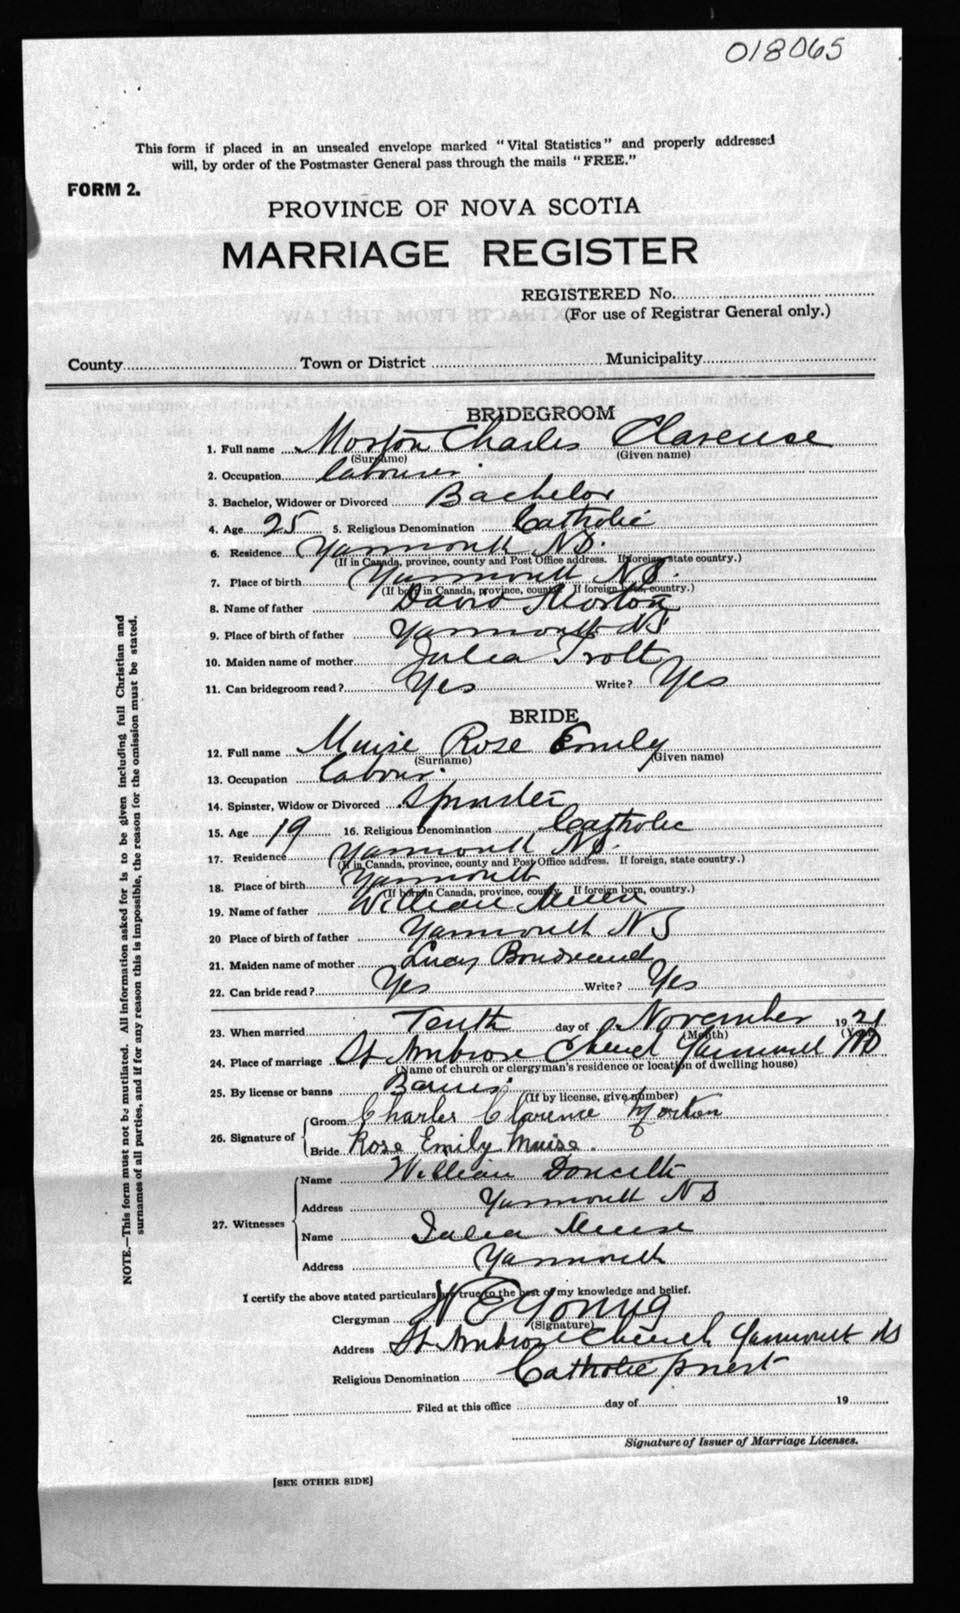 018065
This form if placed in an unsealed envelope marked "Vital Statistics" and properly addressed
will, by order of the Postmaster General pass through the mails "FREE."
FORM 2.
PROVINCE OF NOVA SCOTIA
MARRIAGE REGISTER
REGISTERED No.
(For use of Registrar General only.)
County Town or District Municipality
BRIDEGROOM
1. Full name Morton Charles Clarense
(Surname) (Given name)
2. Occupation labourer
3. Bachelor, Widower or Divorced Bachelor
4. Age 25 5. Religious Denomination Catholic
6. Residence Yarmouth N.S.
(If in Canada, province, county and Post Office address. If foreign, state country.)
7. Place of birth Yarmouth N.S.
(If born in Canada, province, county. If foreign born, country.)
8. Name of father David Morton
9. Place of birth of father Yarmouth NS
10. Maiden name of mother Julia Trott
11. Can bridegroom read? Yes Write? Yes
BRIDE
12. Full name Muise Rose Emily
(Surname) (Given name)
13. Occupation labour.
14. Spinster, Widow or Divorced Spinster
15. Age 19 16. Religious Denomination Catholic
17. Residence Yarmouth N.S.
(If in Canada, province, county and Post Office address. If foreign, state country.)
18. Place of birth Yarmouth
(If born in Canada, province, county. If foreign born, country.)
19. Name of father William
20 Place of birth of father Yarmouth NS
21. Maiden name of mother Lucy
22. Can bride read? Yes Write? Yes
23. When married Tenth day of November 1921
(Month) (Year)
24. Place of marriage St Ambrose Church Yarmouth NS
(Name of church or clergyman's residence or location of dwelling house)
25. By license or banns Banns.
(If by license, give number)
26. Signature of Groom Charles Clarence Morton
Bride Rose Emily Muise.
27. Witnesses Name William
Address Yarmouth NS
Name Julia
Address Yarmouth
I certify the above stated particulars are true to the best of my knowledge and belief.
Clergyman W E Young
(Signature)
Address St Ambrose Church Yarmouth NS
Religious Denomination Catholic priest
Filed at this office day of 19
Signature of Issuer of Marriage Licenses.
[SEE OTHER SIDE]
NOTE.—This form must not be mutilated. All information asked for is to be given including full Christian and
surnames of all parties, and if for any reason this is impossible, the reason for the omission must be stated.